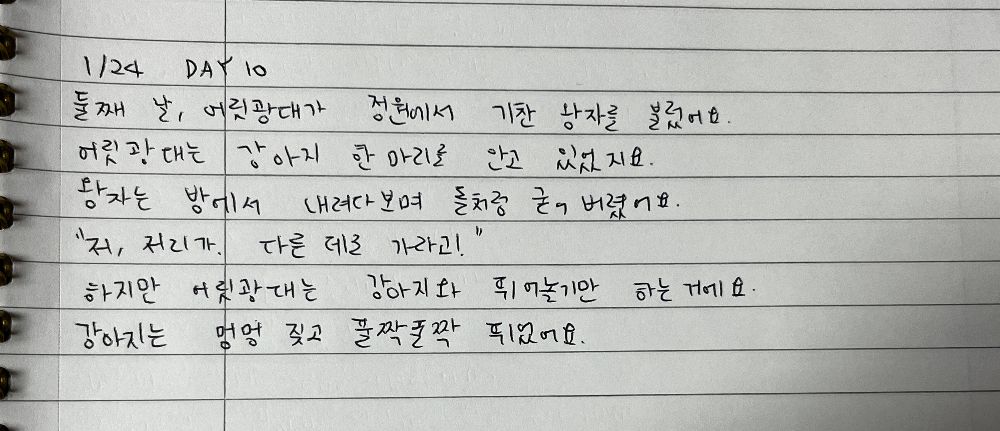 1/24 DAY 10
둘째 날, 어릿광대가 정원에서 기찬 왕자를 불렀어요.
어릿광대는 강아지 한 마리를 안고 있었지요.
왕자는 방에서 내려다보며 돌처럼 굳어 버렸어요.
"저, 저리 가. 다른 데로 가라고!"
하지만 어릿광대는 강아지와 뛰어놀기만 하는 거예요.
강아지는 멍멍 짖고 풀짝풀짝 뛰었어요.